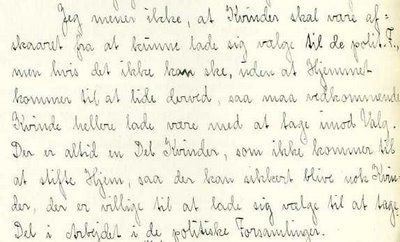 Jeg mener ikke, at Kvinder skal være af=
skaaret fra at kunne lade sig vælge til de polit. F.,
men hvis det ikke kan ske, uden at Hjemmet
kommer til at lide derved, saa maa vedkommende
Kvinde hellere lade være med at tage imod Valg.
Der er altid en Del Kvinder, som ikke kommer til
at stifte Hjem, saa der kan sikkert blive nok Kvin=
der, der er villige til at lade sig vælge til at tage
Del i Arbejdet i de politiske Forsamlinger.